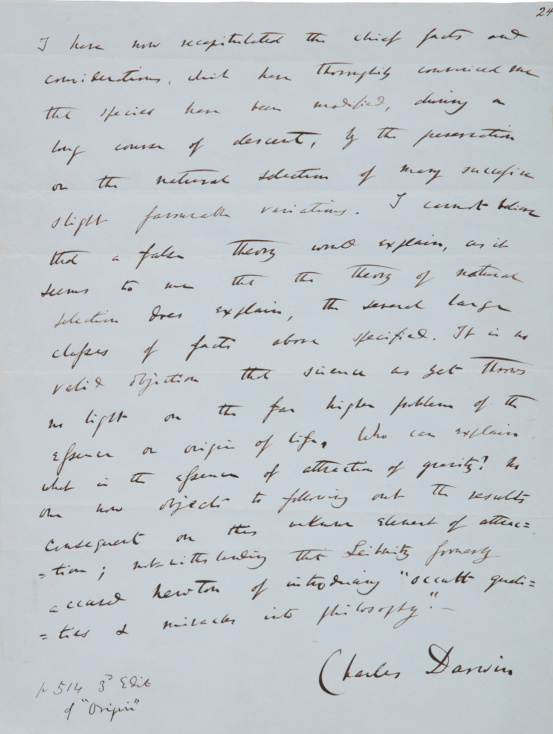 24
I have now recapitulated the chief facts and
considerations, which have thoroughly convinced me
that species have been modified, during a
long course of descent, by the preservation
or the natural selection of many successive
slight favourable variations. I cannot believe
that a false theory would explain, as it
seems to me that the theory of natural
selection does explain, the several large
classes of facts above specified. It is no
valid objection that science as yet throws
no light on the far higher problem of the
essence or origin of life. Who can explain
what is the essence of attraction of gravity? No
one now objects to following out the results
consequent on this unknown element of attrac=
=tion; notwithstanding that Leibnitz formerly
accused Newton of introducing "occult quali=
=ties & miracles into philosophy".—
Charles Darwin
p 514 3d Edit
of "Origin"